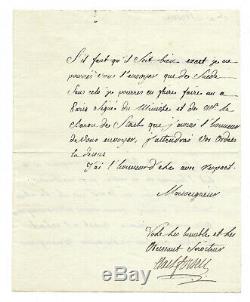 S'il faut qu'il soit bien exact je ne
pourrai vous l'envoyer que des Suède
Sur cela je pourrai en faire faire un a
Paris Signé du Ministre et de Mr le
Baron de Stael que j'aurai l'honneur
de vous envoyer, j'attendrai vos ordres
la dessus
J'ai l'honneur d'etre avec respect
Monseigneur
Votre tres humble et tres
obeissant Serviteur